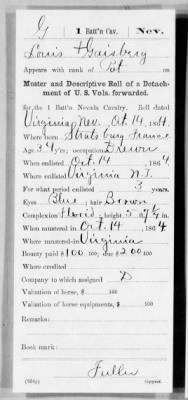 G | 1 Batt'n Cav. | Nev.
Louis Gaisberg
Appears with rank of Pvt on
Muster and Descriptive Roll of a Detach-
ment of U. S. Vols. forwarded.
for the 1 Batt'n Nevada Cavalry. Roll dated
Virginia Nev. Oct 14, 1864.
Where born Strasburg France
Age 34 y'rs; occupation Brewer
When enlisted Oct. 14, 1864
Where enlisted Virginia N.T.
For what period enlisted 3 years.
Eyes Blue; hair Brown
Complexion Florid; height 5 ft. 7 1/2 in.
When mustered in Oct. 14, 1864
Where mustered in Virginia
Bounty paid $100 100; due $200 100
Where credited
Company to which assigned D
Valuation of horse, $ 100
Valuation of horse equipments, $ 100
Remarks:
Book mark:
Fuller
Copyist.